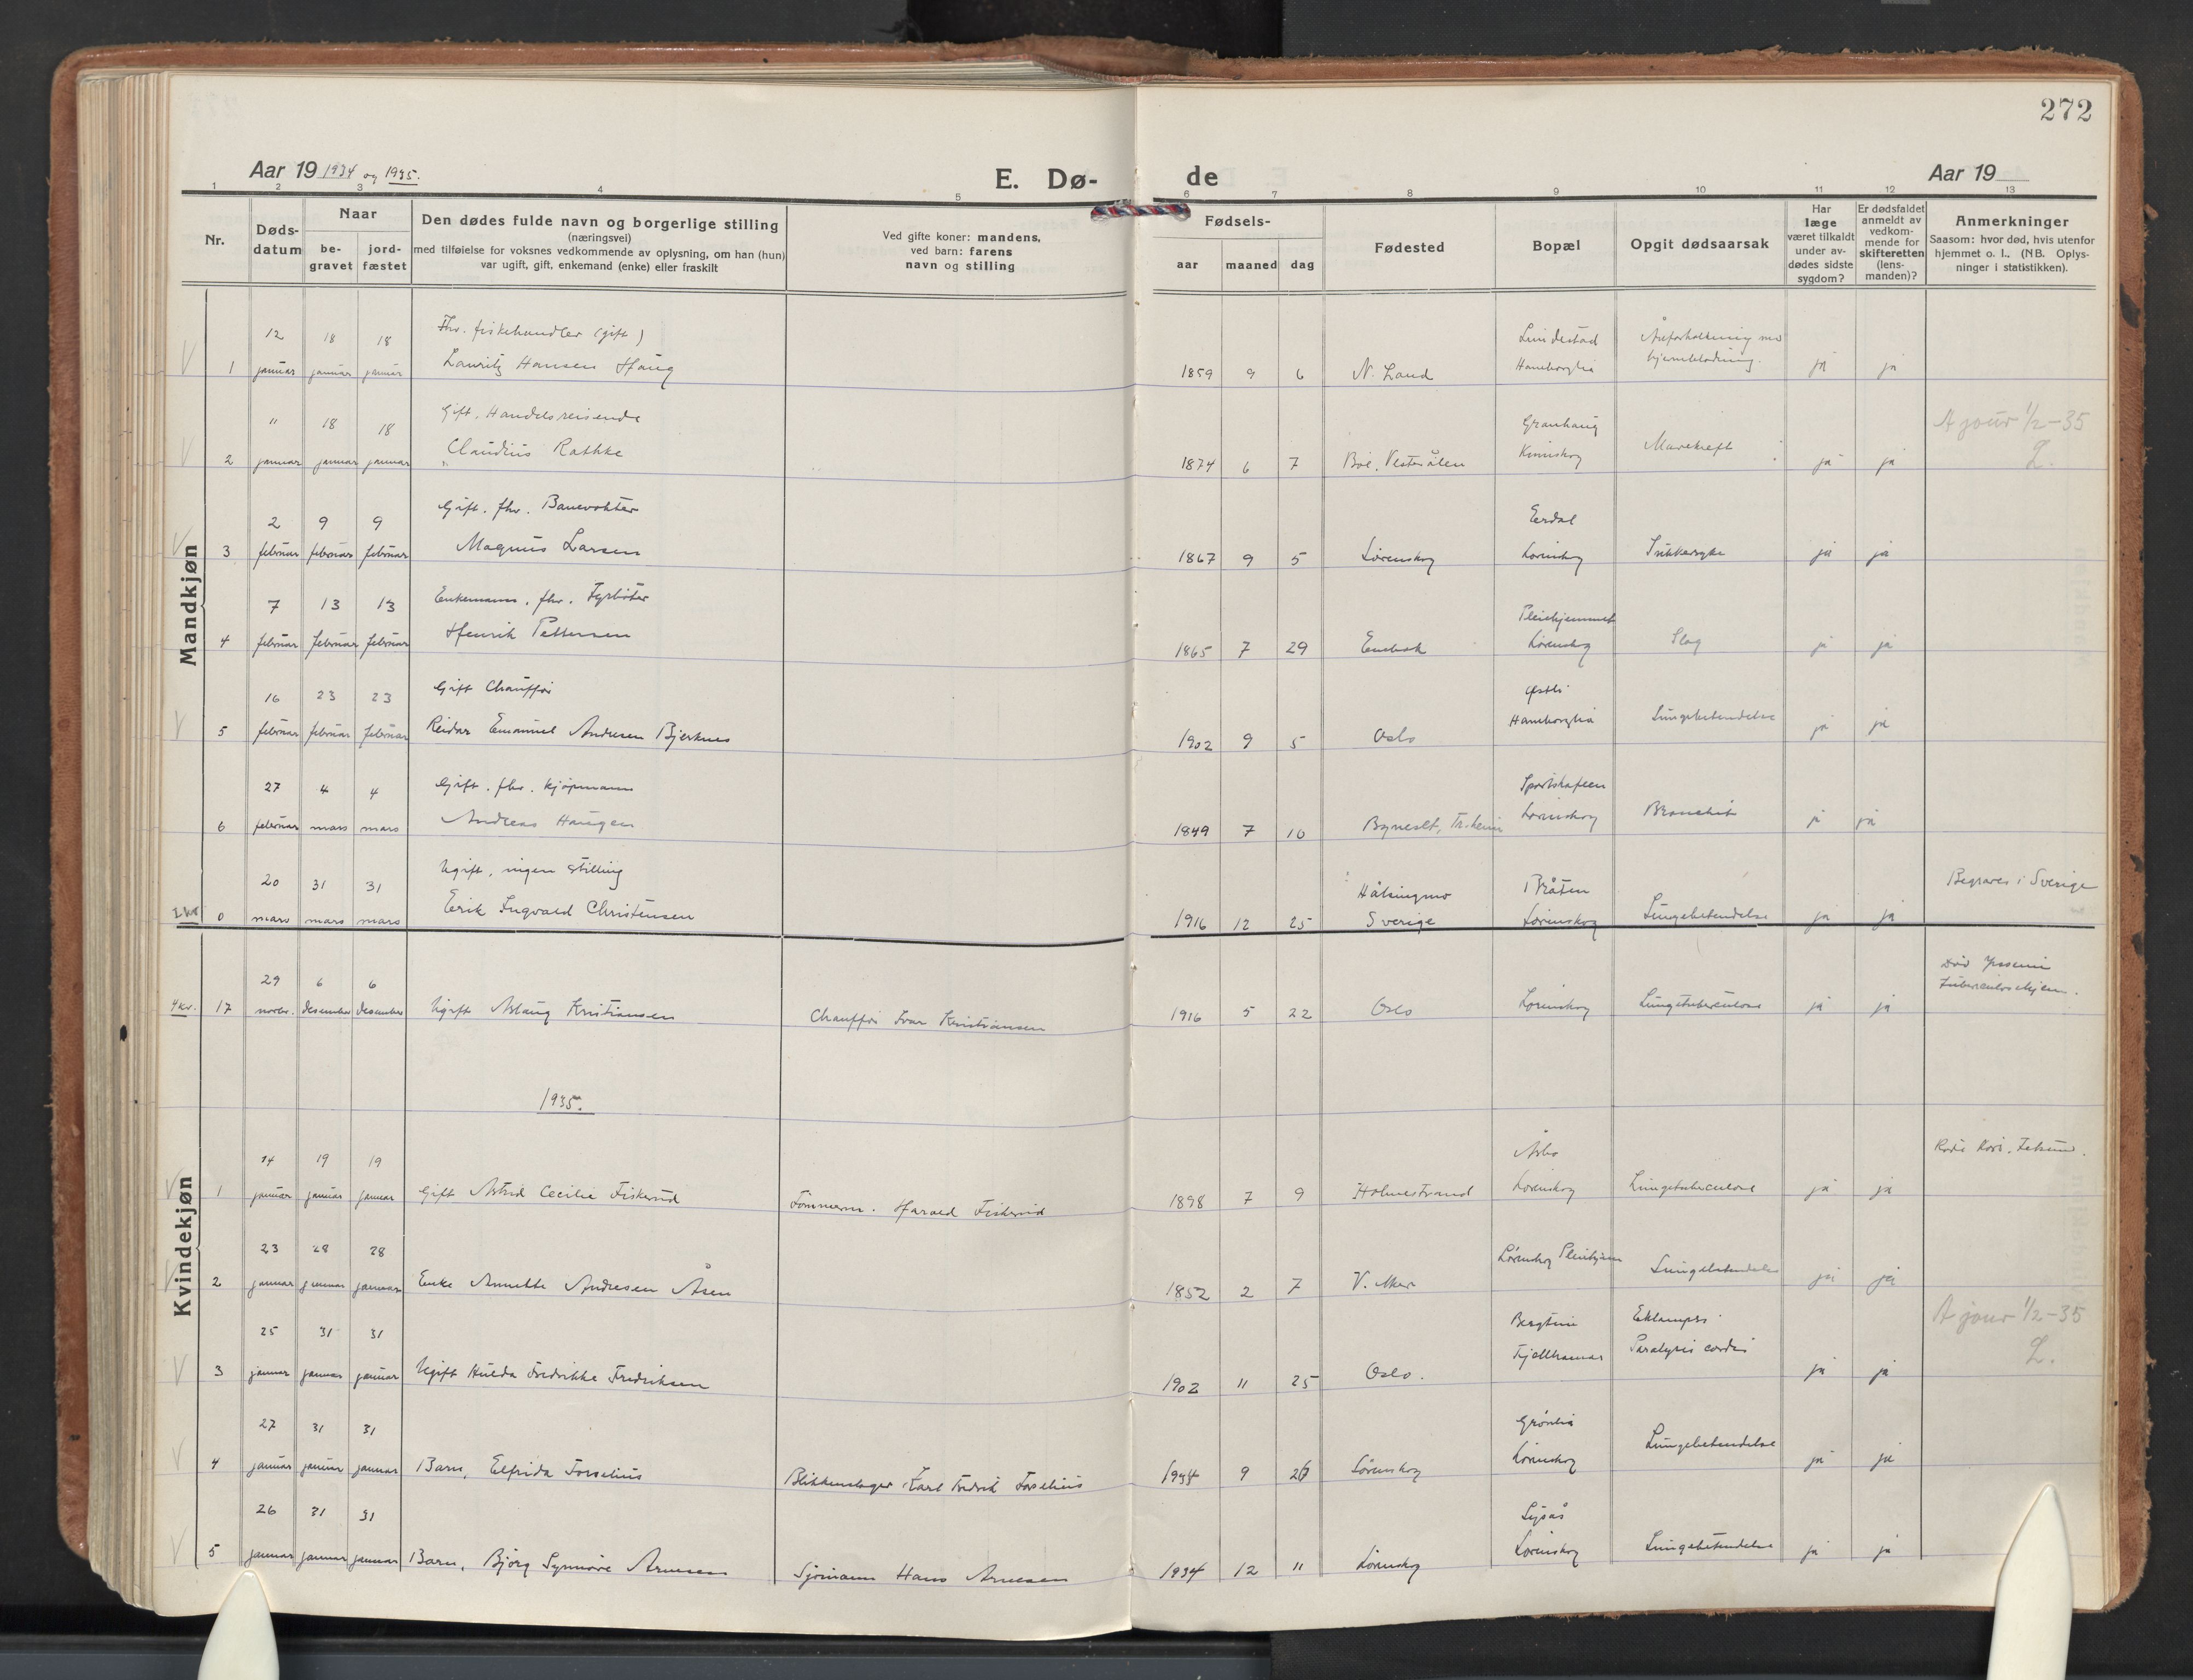 272
Aar 19 1934 og 1935.
E. Dø-
de
Aar 19
1 2 3 4 5 6 7 8 9 10 11 12 13
Nr.
Døds-
datum
Naar
be-
gravet
jord-
fæstet
Den dødes fulde navn og borgerlige stilling
(næringsvei)
med tilføielse for voksnes vedkommende av oplysning, om han (hun)
var ugift, gift, enkemand (enke) eller fraskilt
Ved gifte koner: mandens,
ved barn: farens
navn og stilling
Fødsels-
aar maaned dag
Fødested
Bopæl
Opgit dødsaarsak
Har
læge
været tilkaldt
under av-
dødes sidste
sygdom?
Er dødsfaldet
anmeldt av
vedkom-
mende for
skifteretten
(lens-
manden)?
Anmerkninger
Saasom: hvor død, hvis utenfor
hjemmet o. l.. (NB. Oplys-
ninger i statistikken).
Mandkjøn
12 18 18 Fhv. fiskehandler (gift) Lundestad
1 januar januar januar Lauritz Hansen Haug 1859 9 6 N. Land Haneborglia hjerneblødning. ja ja
" 18 18 Gift. Handelsreisende Granhaug A jour 1/2-35
2 januar januar januar Claudius Rathke 1874 6 7 Bøe, Vesterålen Kinnskog Mavekreft ja ja L.
2 9 9 Gift. fhv. Banevokter
3 februar februar februar Magnus Larsen 1867 9 5 Lørenskog Lørenskog Sukkersyke ja ja
7 13 13 Enkemann. fhv. Fyrbøter Pleiehjemmet
4 februar februar februar Henrik Pettersen 1865 7 29 Enebak Lørenskog Slag ja ja
16 23 23 Gift Chauffør Østli
5 februar februar februar Reidar Emanuel Andresen Bjerknes 1902 9 5 Oslo Haneborglia Lungebetendelse ja ja
27 4 4 Gift. fhv. kjøpmann Sportskafeen
6 februar mars mars Andreas Haugen 1849 7 10 Byneset, Tr.heim Lørenskog Bronchit ja ja
20 31 31 Ugift, ingen stilling Bråten Begraves i Sverige
0 mars mars mars Erik Ingvald Christensen 1916 12 25 Sverige Lørenskog Lungebetendelse ja ja
Kvindekjøn
29 6 6 Død
4 kv. 17 novbr. desember desember Ugift Aslaug Kristiansen Chauffør Ivar Kristiansen 1916 5 22 Oslo Lørenskog Lungetuberculose ja ja Tuberculosehjem.
1935.
14 19 19 Åsbo Røde Kors,
1 januar januar januar Gift Astrid Cecilie Fiskerud Tømmerm. Harald Fiskerud 1898 7 9 Holmestrand Lørenskog Lungetuberculose ja ja
23 28 28 Lørenskog Pleiehjem
2 januar januar januar Enke Annette Andresen Åsen 1852 2 7 V. Aker Lungebetendelse ja ja
25 31 31 Eklampsi A jour 1/2-35
3 januar januar januar Ugift Hulda Fredrikke Fredriksen 1902 11 25 Oslo. Fjellhamar Paralysis cordis ja ja L.
27 31 31 Grønlia
4 januar januar januar Barn, Elfrida Forselius Blikkenslager Karl Fredrik Forselius 1934 9 Lørenskog Lørenskog Lungebetendelse ja ja
26 31 31
5 januar januar januar Barn, Bjørg Synnøve Arnesen Sjømann Hans Arnesen 1934 12 11 Lørenskog Lørenskog Lungebetendelse ja ja